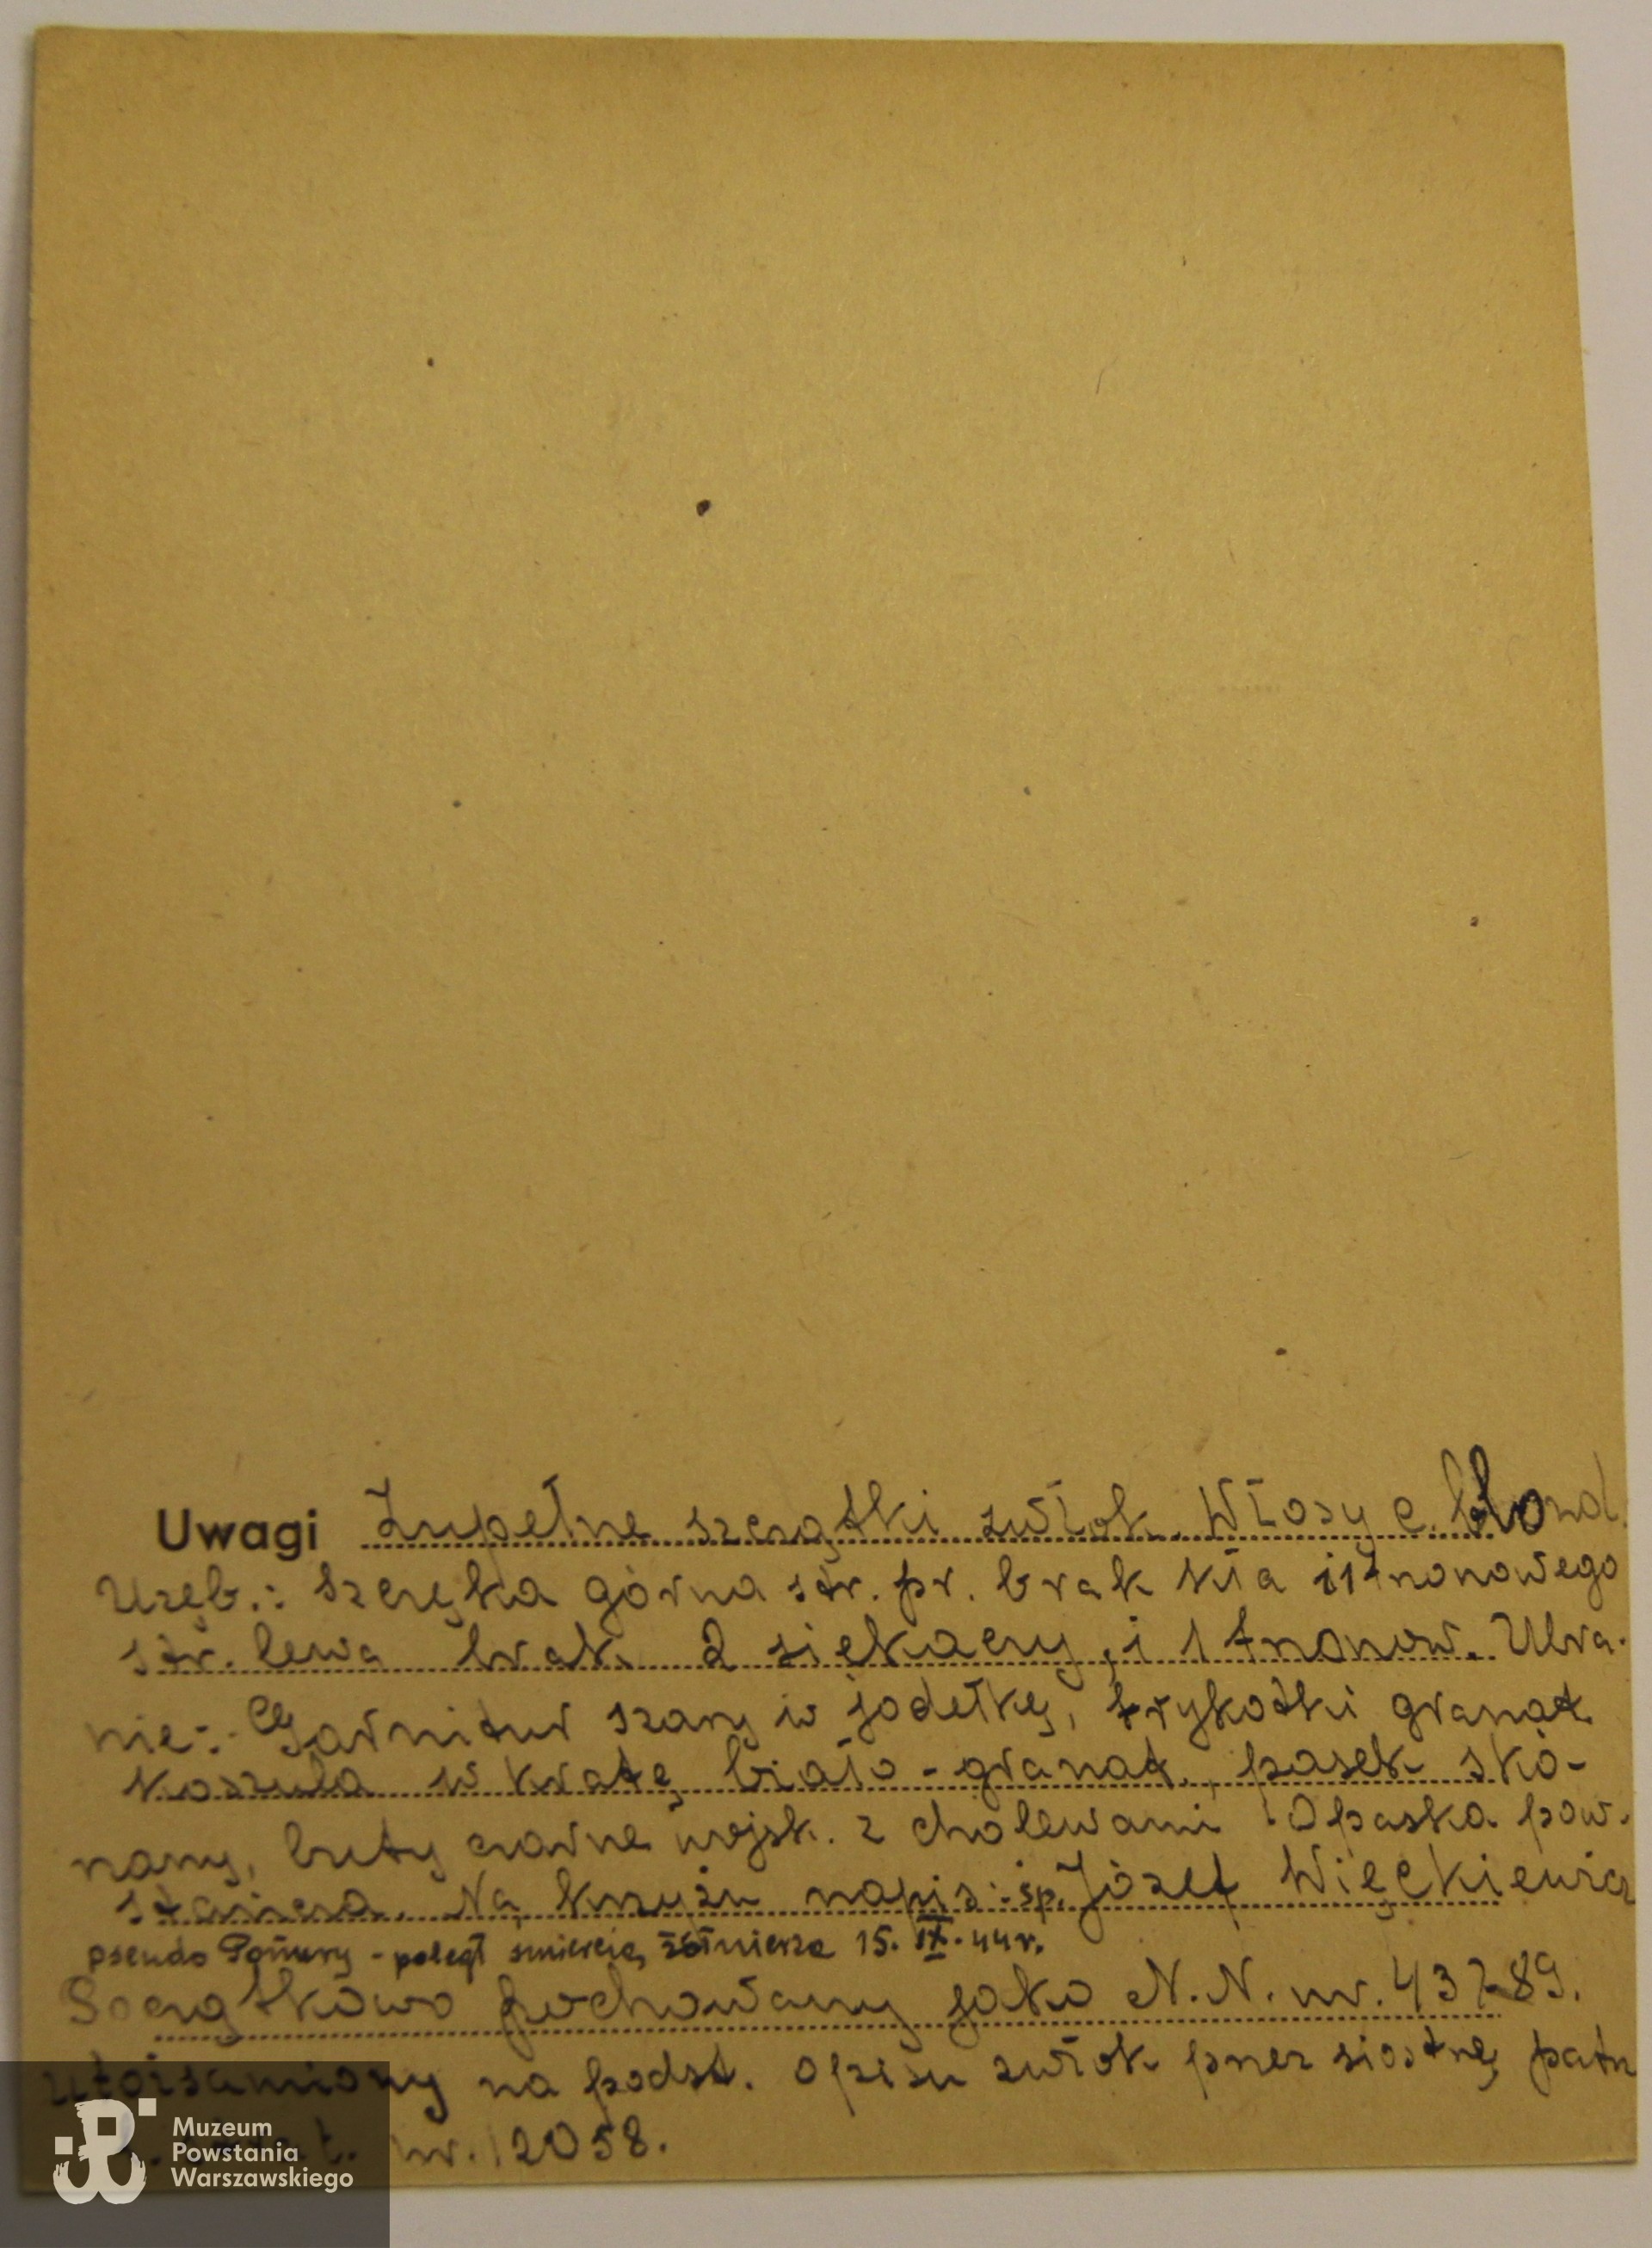 Uwagi Zupełne szczątki zwłok. Włosy c. blond.
Uzęb.: szczęka górna str. pr. brak kła i 1 trzonowego
str. lewa brak 2 siekaczy, i 1 trzonow. Ubra-
nie: Garnitur szary w jodełkę, trykotki granat.
koszula w kratę biało-granat., pasek skó-
rzany, buty czarne wojsk. z cholewami. Opaska pow-
stańcza. Na krzyżu napis: śp. Józef Więckiewicz
pseudo Ponury - poległ śmiercią żołnierza 15. IX. 44 r.
Początkowo pochowany jako N.N. nr. 43789.
utożsamiony na podst. opisu zwłok przez siostrę patrz
nr. 12058.
Muzeum
Powstania
Warszawskiego